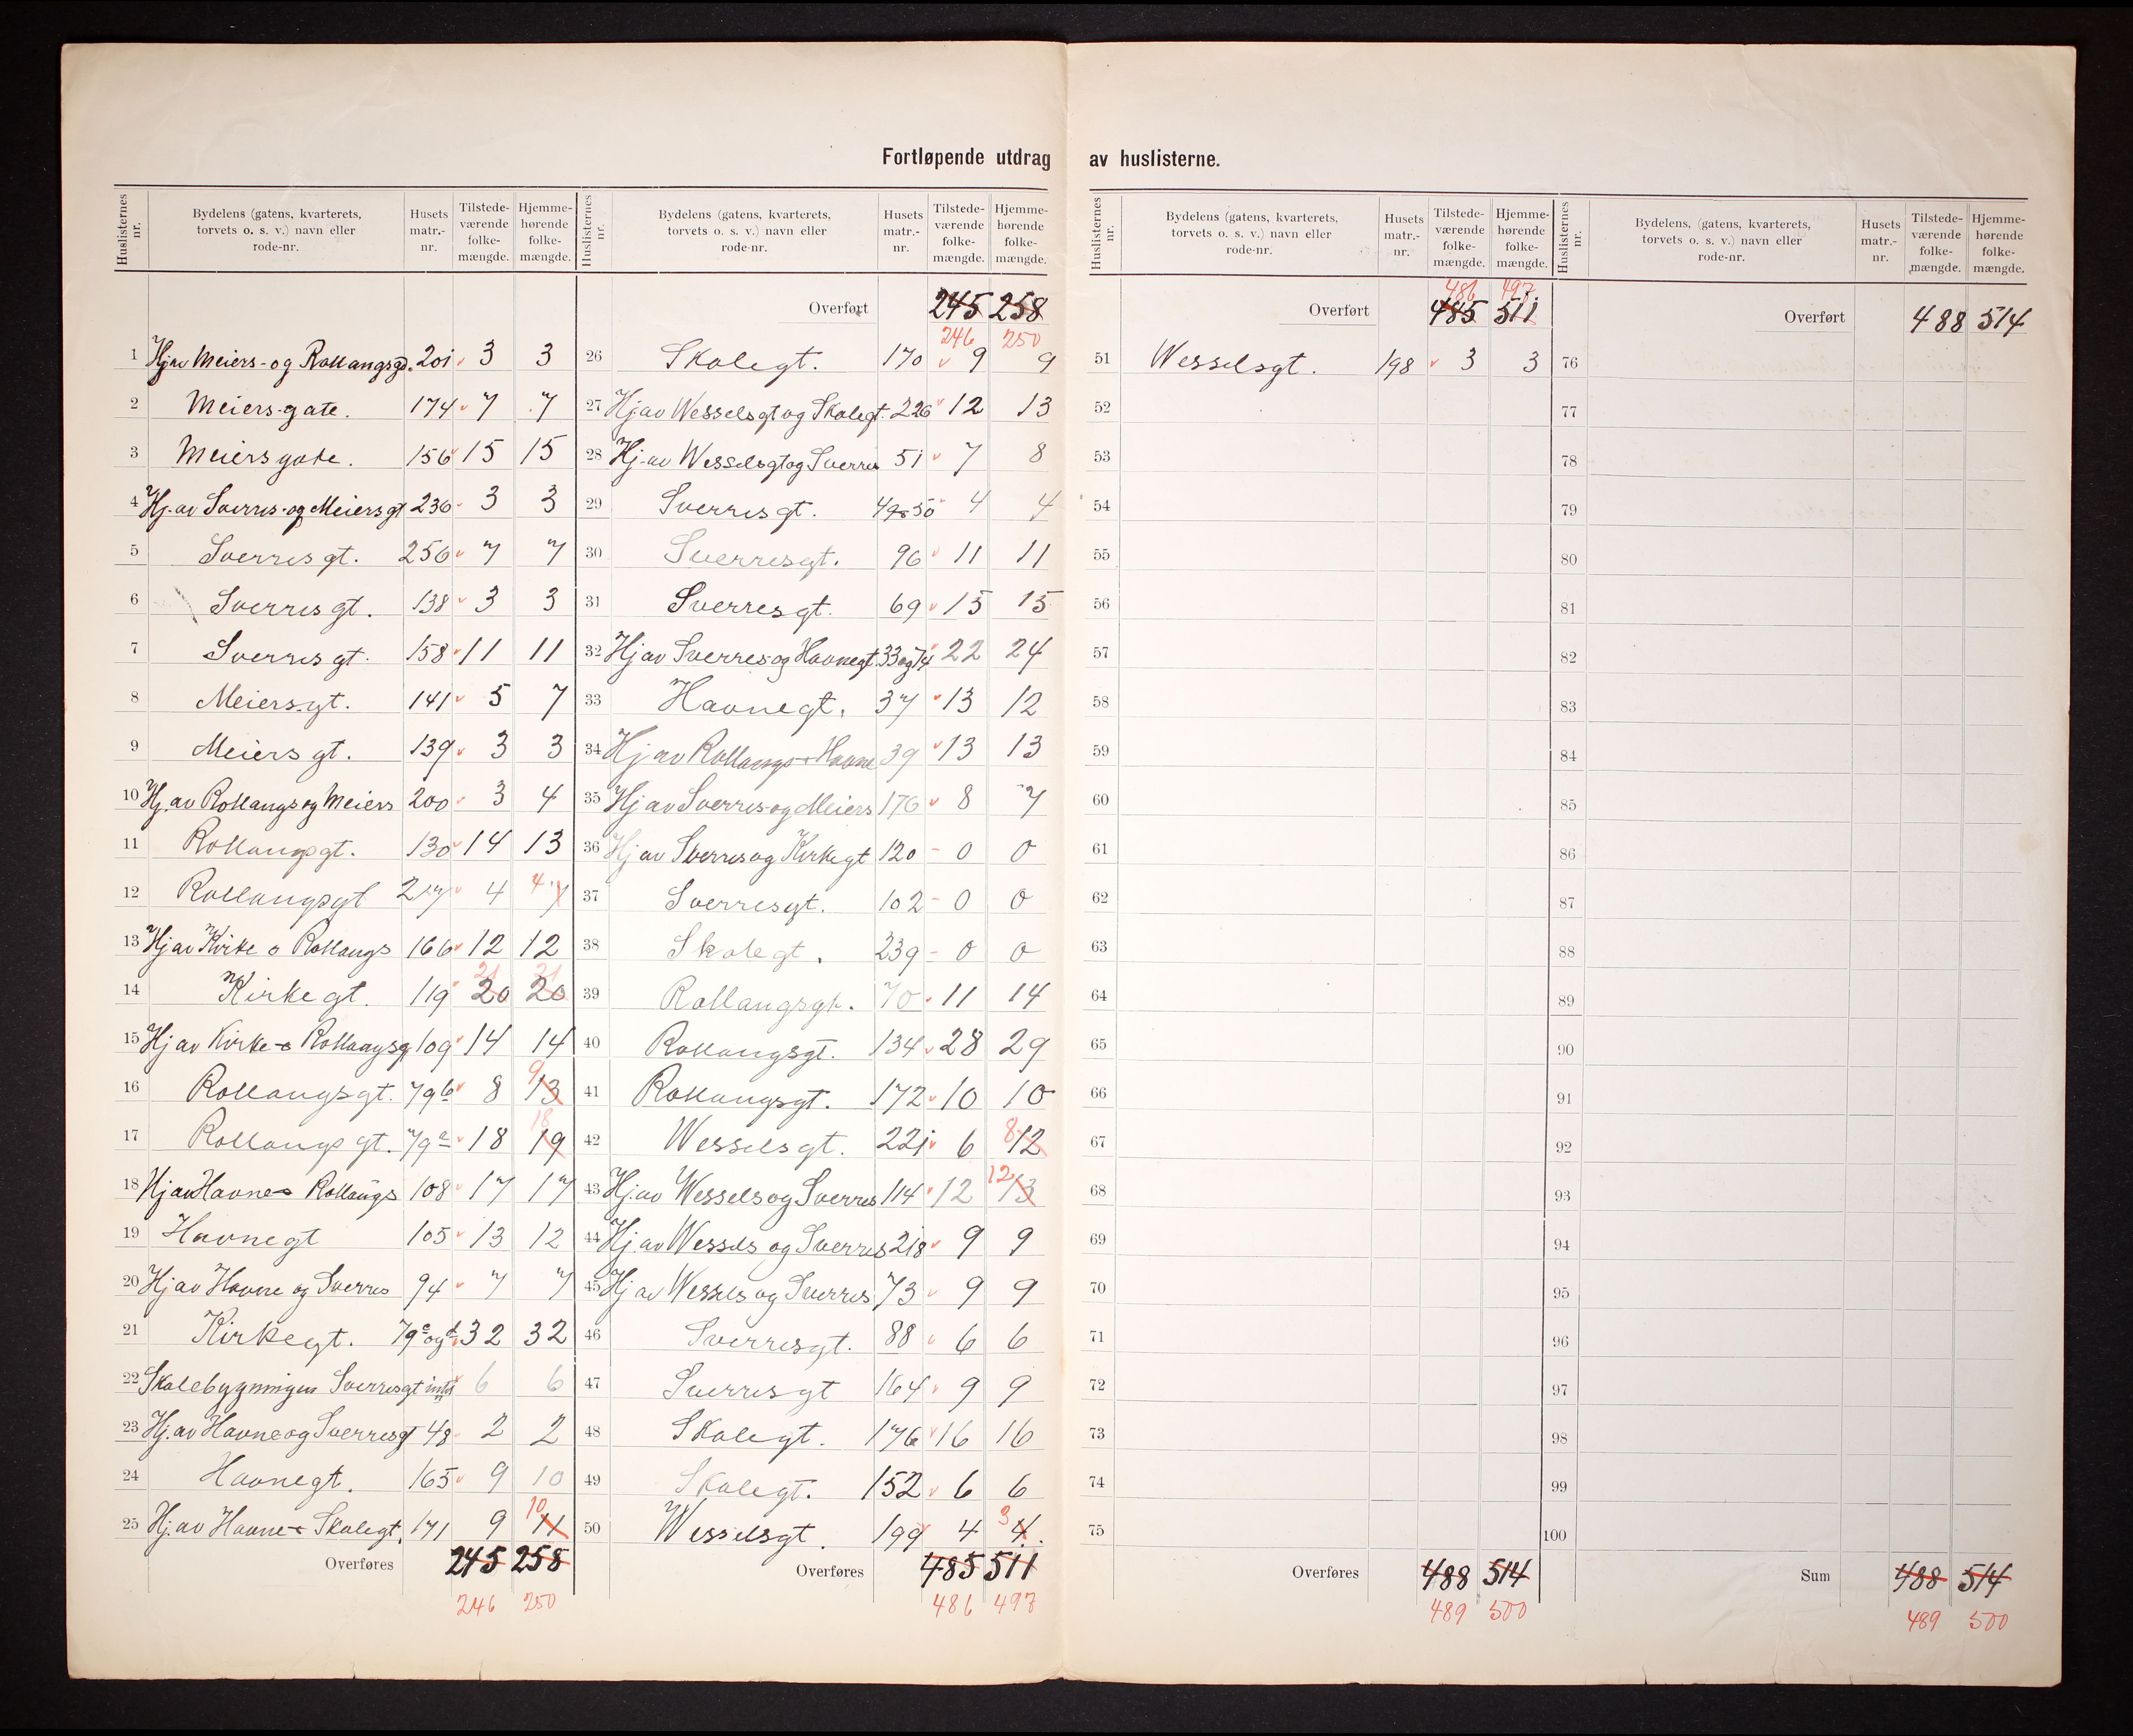 Fortløpende utdrag av huslisterne.
Huslisternes nr. | Bydelens (gatens, kvarterets, torvets o. s. v.) navn eller rode-nr. | Husets matr.-nr. | Tilstede-værende folke-mængde. | Hjemme-hørende folke-mængde.
1 Hj av Meiers- og Rollangsgd. 201 3 3
2 Meiers-gate. 174 7 7
3 Meiersgate. 156 15 15
4 Hj. av Sverres- og Meiersgt 236 3 3
5 Sverresgt. 256 7 7
6 Sverresgt. 138 3 3
7 Sverresgt. 158 11 11
8 Meiersgt. 141 5 7
9 Meiersgt. 139 3 3
10 Hj. av Rollangs og Meiers 200 3 4
11 Rollangsgt. 130 14 13
12 Rollangsgt 217 4 4 7
13 Hj av Kirke o Rollangs 166 12 12
14 Kirkegt. 119 21 20 21 20
15 Hj av Kirke- o Rollangsg 109 14 14
16 Rollangsgt. 79b 8 9 13
17 Rollangsgt. 79a 18 18 19
18 Hj av Havne o Rollangs 108 17 17
19 Havnegt 105 13 12
20 Hj av Havne og Sverres 94 7 7
21 Kirkegt. 79c og d 32 32
22 Skolebygningen Sverresgt intet 6 6
23 Hj. av Havne og Sverresgt 48 2 2
24 Havnegt. 165 9 10
25 Hj. av Havne- o Skolegt. 171 9 10 11
Overføres 245 258
246 250
Huslisternes nr. | Bydelens (gatens, kvarterets, torvets o. s. v.) navn eller rode-nr. | Husets matr.-nr. | Tilstede-værende folke-mængde. | Hjemme-hørende folke-mængde.
Overført 245 258
246 250
26 Skolegt. 170 9 9
27 Hj av Wesselsgt og Skolegt. 226 12 13
28 Hj. av Wesselsgt og Sverres 51 7 8
29 Sverresgt. 49 o 50 4 4
30 Sverresgt. 96 11 11
31 Sverresgt. 69 15 15
32 Hj av Sverres og Havnegt. 33 og 74 22 24
33 Havnegt. 37 13 12
34 Hj av Rollangs- o Havne 39 13 13
35 Hj av Sverres- og Meiers 176 8 7
36 Hj av Sverres og Kirkegt 120 0 0
37 Sverresgt. 102 0 0
38 Skolegt. 239 0 0
39 Rollangsgt. 70 11 14
40 Rollangsgt. 134 28 29
41 Rollangsgt. 172 10 10
42 Wesselsgt. 221 6 8 12
43 Hj. av Wessels og Sverres 114 12 12 13
44 Hj. av Wessels og Sverres 218 9 9
45 Hj av Wessels og Sverres 73 9 9
46 Sverresgt. 88 6 6
47 Sverresgt 164 9 9
48 Skolegt. 176 16 16
49 Skolegt. 152 6 6
50 Wesselsgt. 199 4 3 4.
Overføres 485 511
486 497
Huslisternes nr. | Bydelens (gatens, kvarterets, torvets o. s. v.) navn eller rode-nr. | Husets matr.-nr. | Tilstede-værende folke-mængde. | Hjemme-hørende folke-mængde.
486 497
Overført 485 511
51 Wesselsgt. 198 3 3
52
53
54
55
56
57
58
59
60
61
62
63
64
65
66
67
68
69
70
71
72
73
74
75
Overføres 488 514
489 500
Huslisternes nr. | Bydelens, (gatens, kvarterets, torvets o. s. v.) navn eller rode-nr. | Husets matr.-nr. | Tilstede-værende folke-mængde. | Hjemme-hørende folke-mængde.
Overført 488 514
76
77
78
79
80
81
82
83
84
85
86
87
88
89
90
91
92
93
94
95
96
97
98
99
100
Sum 488 514
489 500